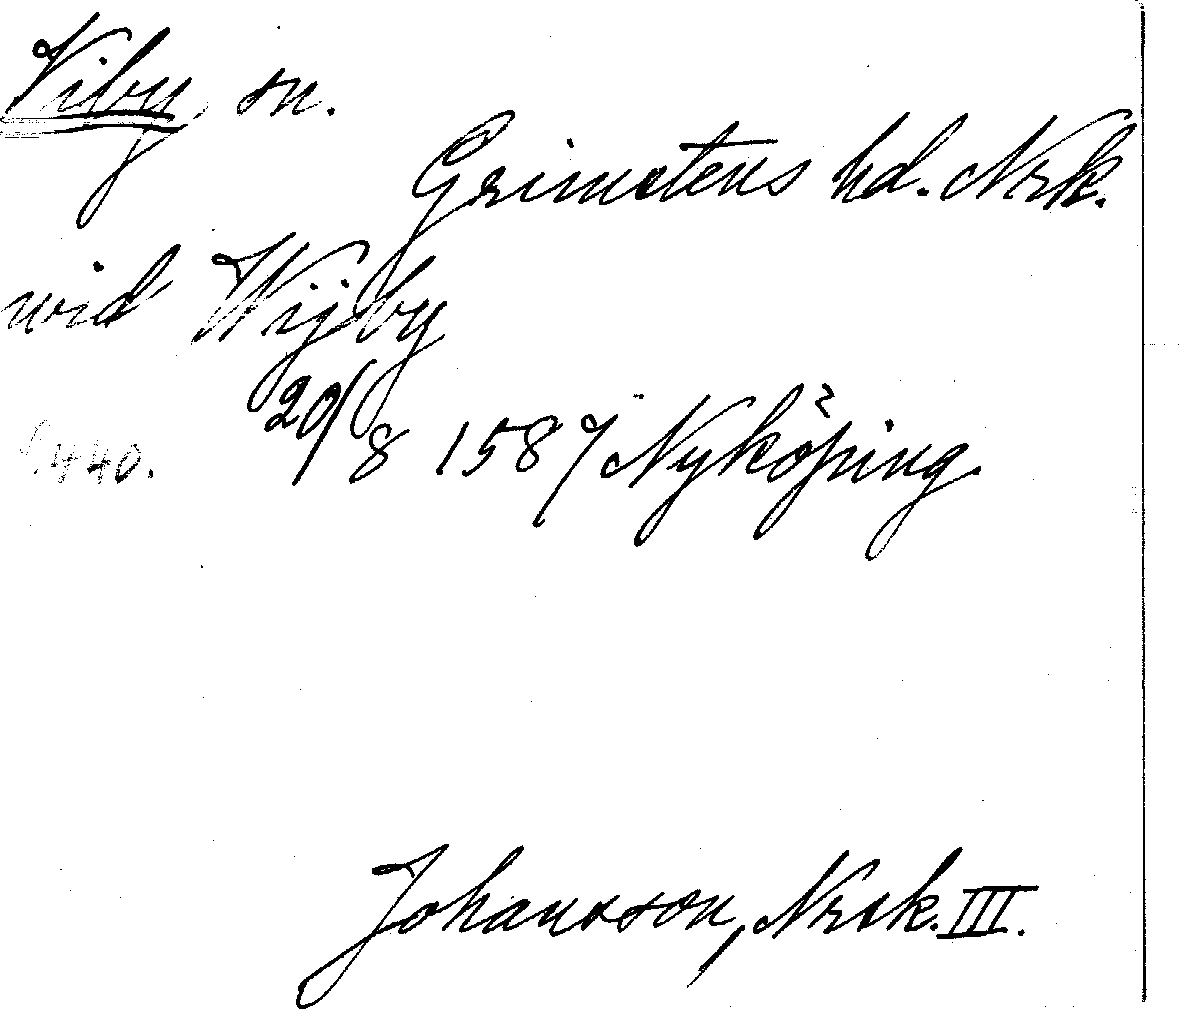 Viby sn.
Grimstens hd. Nrk.
wid Wijby
S. 440. 20/8 1587 Nyköping.
Johansson, Nrck. III.